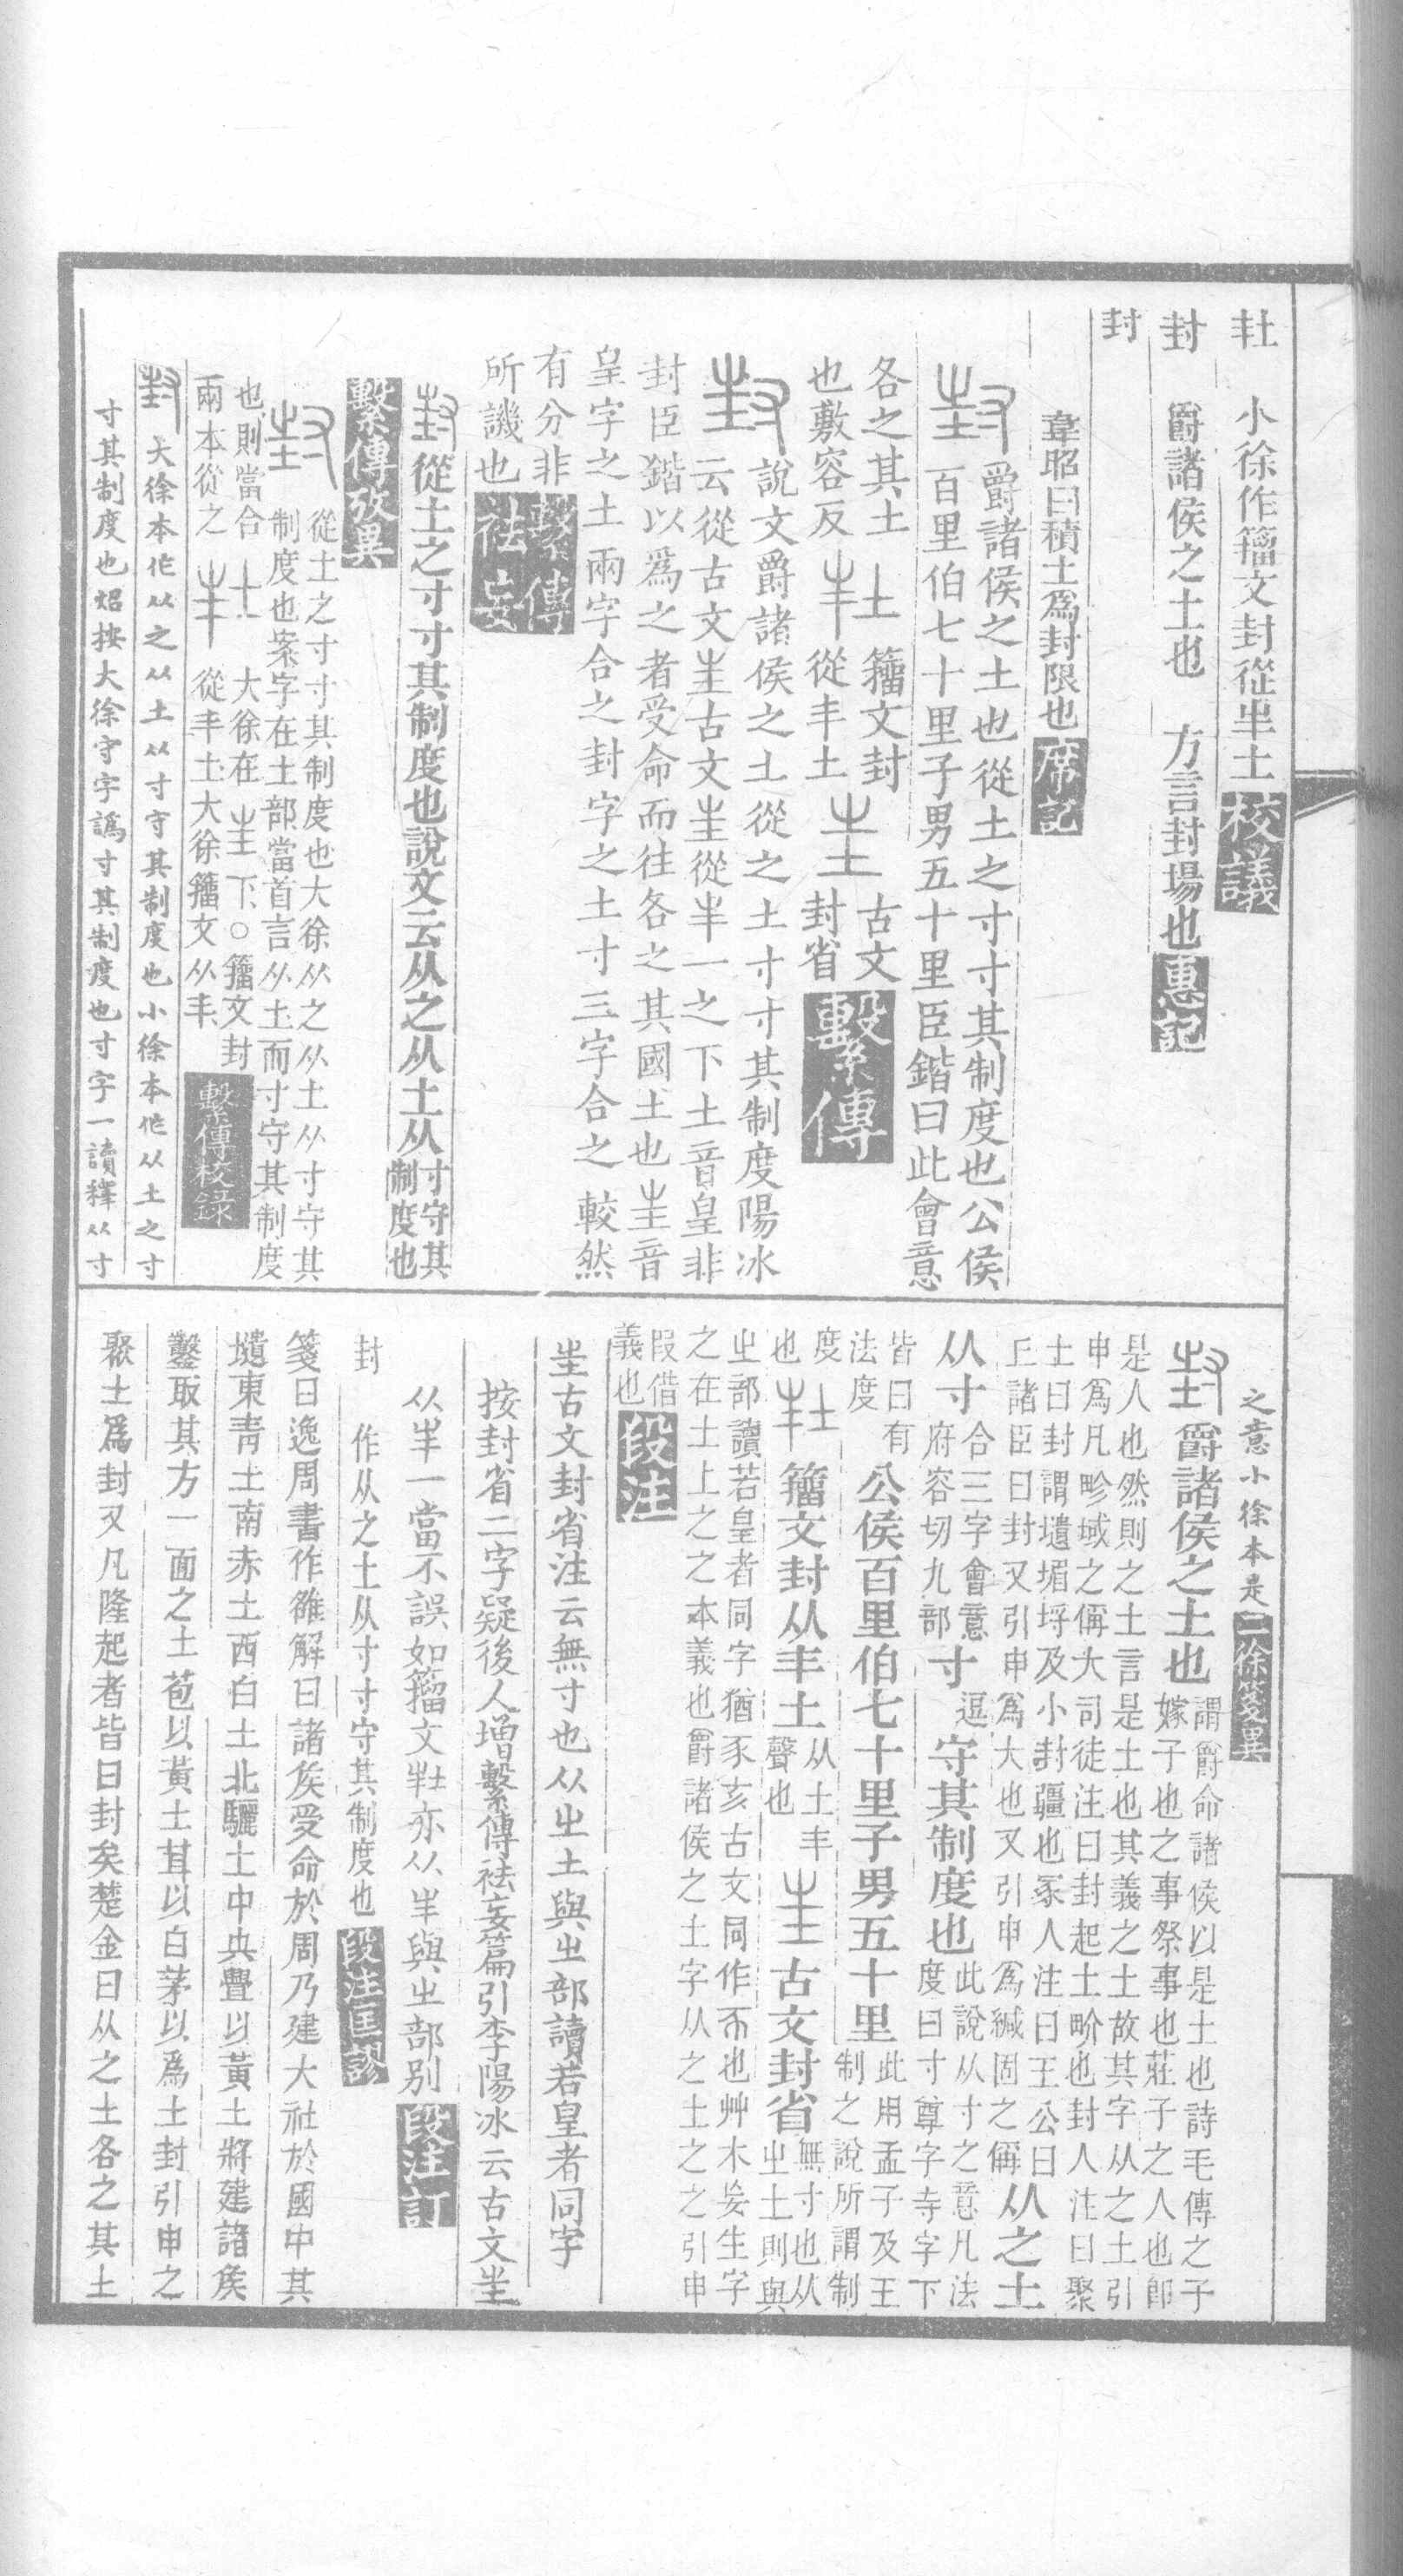 𡉚　小徐作籀文封從半土校議
封　爵諸侯之土也　方言封場也惠記
封
韋昭曰積土為封限也席記
爵諸侯之土也從土之寸寸其制度也公侯
百里伯七十里子男五十里臣鍇曰此會意
各之其土　籀文封　古文
也敷容反　從丰土　封省　繫傳
說文爵諸侯之土從之土寸寸其制度陽冰
云從古文㞷古文㞷從半一之下土音皇非
封臣鍇以為之者受命而往各之其國土也㞷音
皇字之土兩字合之封字之土寸三字合之較然
有分非
所譏也　繫傳袪妄
封從土之寸寸其制度也說文云从之从土从寸守其制度也
繫傳攷異
從土之寸寸其制度也大徐从之从土从寸守其
制度也案字在土部當首言从土而寸守其制度
也則當合　大徐在㞷下○籀文封
兩本從之　從丰土大徐籀文从丰　繫傳校錄
封　大徐本作从之从土从寸守其制度也小徐本作从土之寸
寸其制度也炤按大徐守字譌寸其制度也寸字一讀釋从寸
之意小徐本是二徐箋異
封　爵諸侯之土也　謂爵命諸侯以是土也詩毛傳之子
嫁子也之事祭事也莊子之人也即
是人也然則之土言是土也其義之土故其字从之土引
申為凡畛域之偁大司徒注曰封起土畍也封人注曰聚
土曰封謂壝堳埒及小封疆也冢人注曰王公曰
丘諸臣曰封又引申為大也又引申為緘固之偁　从之土
从寸　合三字會意
府容切九部　寸　逗　守其制度也　此說从寸之意凡法
度曰寸尊字寺字下
皆曰有
法度　公侯百里伯七十里子男五十里　此用孟子及王
制之說所謂制
度
也　籀文封从丰土　从土丰
聲也　㞷古文封省　無寸也从
㞢土則與
㞢部讀若皇者同字猶豕亥古文同作𠀬也艸木妄生字
之在土上之之本義也爵諸侯之土字从之土之之引申
叚借
義也　段注
㞷古文封省注云無寸也从㞢土與㞢部讀若皇者同字
按封省二字疑後人增繫傳祛妄篇引李陽冰云古文㞷
从半一當不誤如籀文𡉚亦从半與㞢部別段注訂
封　作从之土从寸寸守其制度也段注匡謬
箋曰逸周書作雒解曰諸矦受命於周乃建大社於國中其
壝東靑土南赤土西白土北驪土中央疊以黃土將建諸矦
鑿取其方一面之土苞以黃土苴以白茅以為土封引申之
聚土為封又凡隆起者皆曰封矣楚金曰从之土各之其土